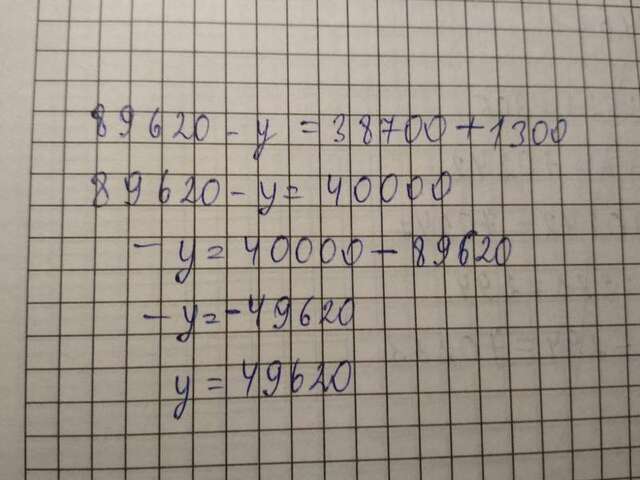 89620 - y = 38700 + 1300
89620 - y = 40000
- y = 40000 - 89620
- y = -49620
y = 49620